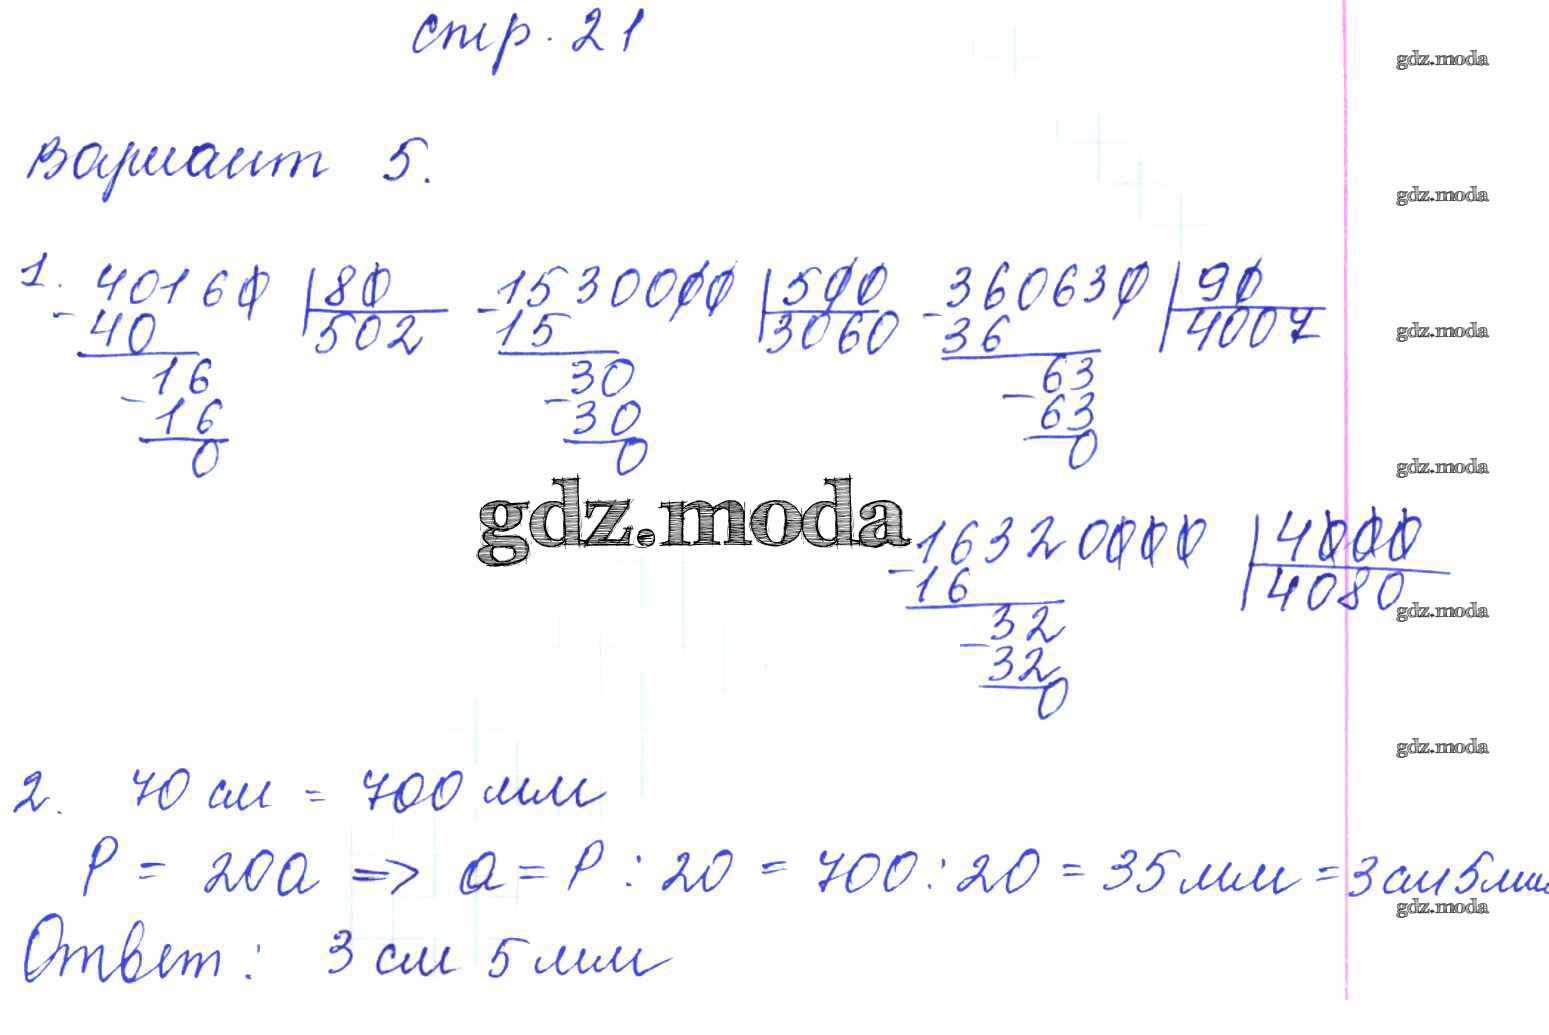 стр. 21
gdz.moda
Вариант 5.
gdz.moda
1. 40160 | 80 1530000 | 500 360630 | 90
- 40 502 - 15 3060 - 36 4007
gdz.moda
16 30 63
- 16 - 30 - 63
0 0 0
gdz.moda
gdz.moda
16320000 | 4000
- 16 4080
gdz.moda
32
- 32
0
gdz.moda
2. 70 см = 700 мм
P = 20a => a = P : 20 = 700 : 20 = 35 мм = 3 см 5 мм
gdz.moda
Ответ: 3 см 5 мм